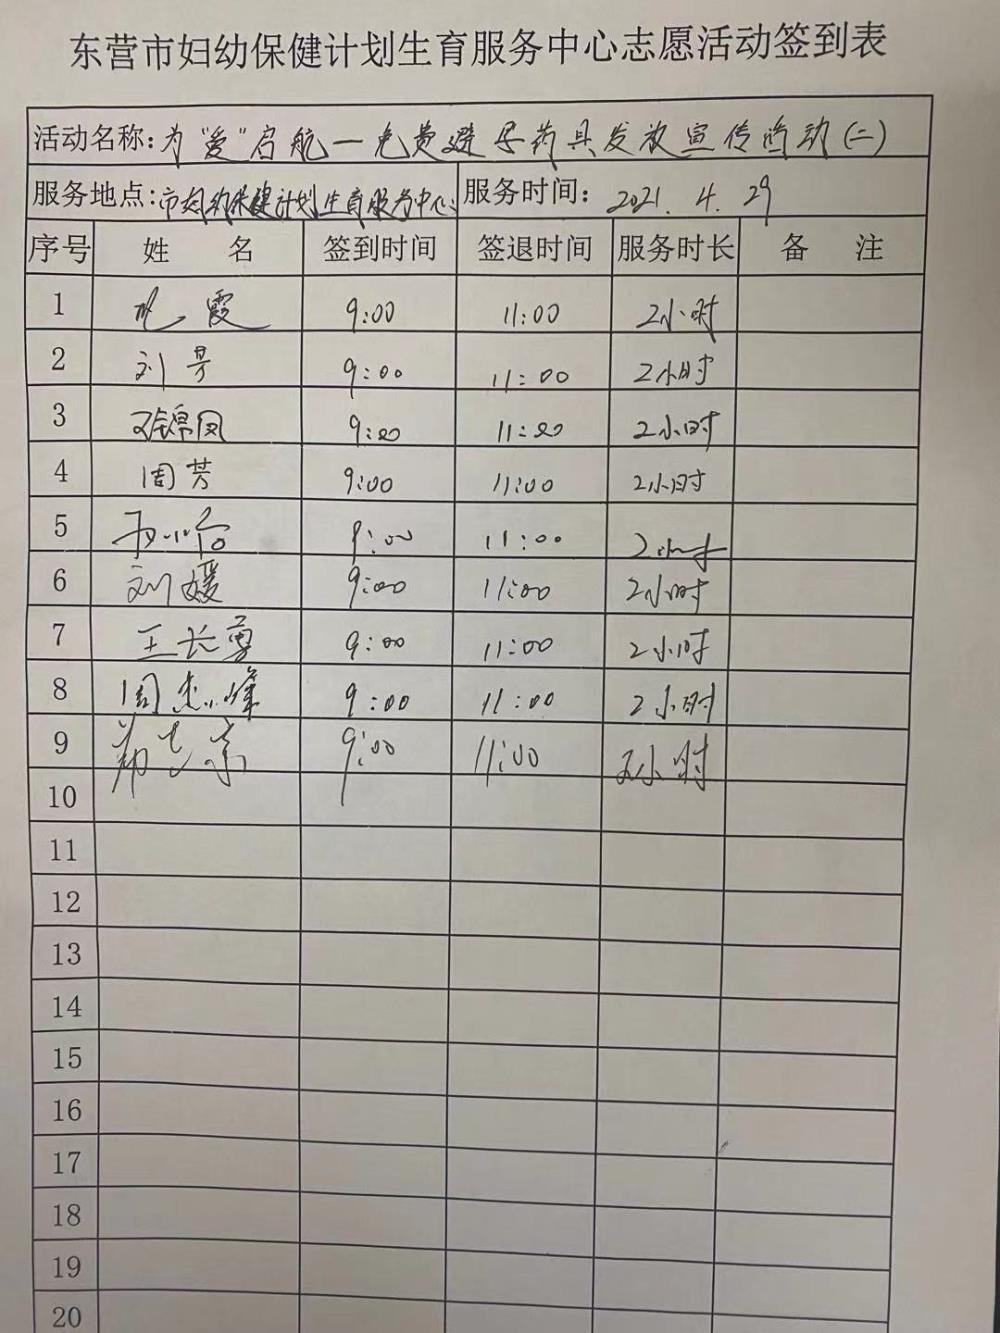 东营市妇幼保健计划生育服务中心志愿活动签到表
活动名称:为"爱"启航—免费避孕药具发放宣传活动(二)
服务地点:市妇幼保健计划生育服务中心 服务时间: 2021.4.29
序号 姓 名 签到时间 签退时间 服务时长 备 注
1 霞 9:00 11:00 2小时
2 刘芳 9:00 11:00 2小时
3 锦凤 9:00 11:00 2小时
4 周芳 9:00 11:00 2小时
5 9:00 11:00 2小时
6 刘媛 9:00 11:00 2小时
7 王长勇 9:00 11:00 2小时
8 周 峰 9:00 11:00 2小时
9 郑 9:00 11:00 2小时
10
11
12
13
14
15
16
17
18
19
20